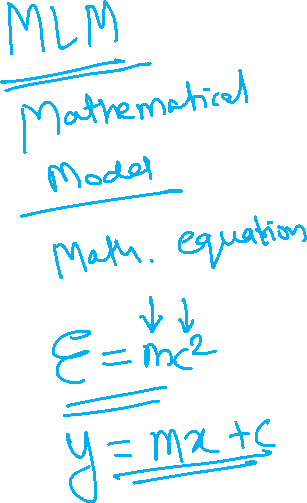 MLM
Mathematical
Model
Math. equation
↓ ↓
E = mc²
y = mx + c